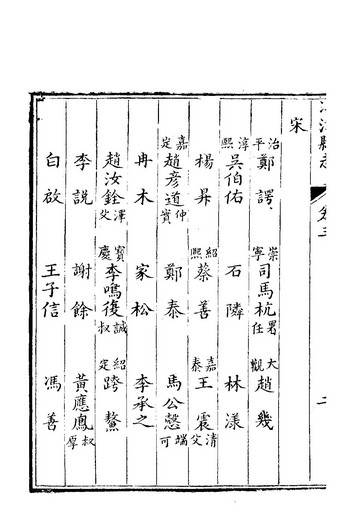 宋
治平鄭諤 崇寧司馬杭署任 大觀趙幾
淳熙吳伯佑 石隣 林漾
楊昇 紹熙蔡善 嘉泰王震清父
嘉定趙彥道仲實 鄭泰 馬公愨端可
冉木 家松 李承之
趙汝銓澤父 寶慶李鳴復誠叔 紹定跨鰲
李說 謝餘 黃應鳳叔厚
白啟 王子信 馮善